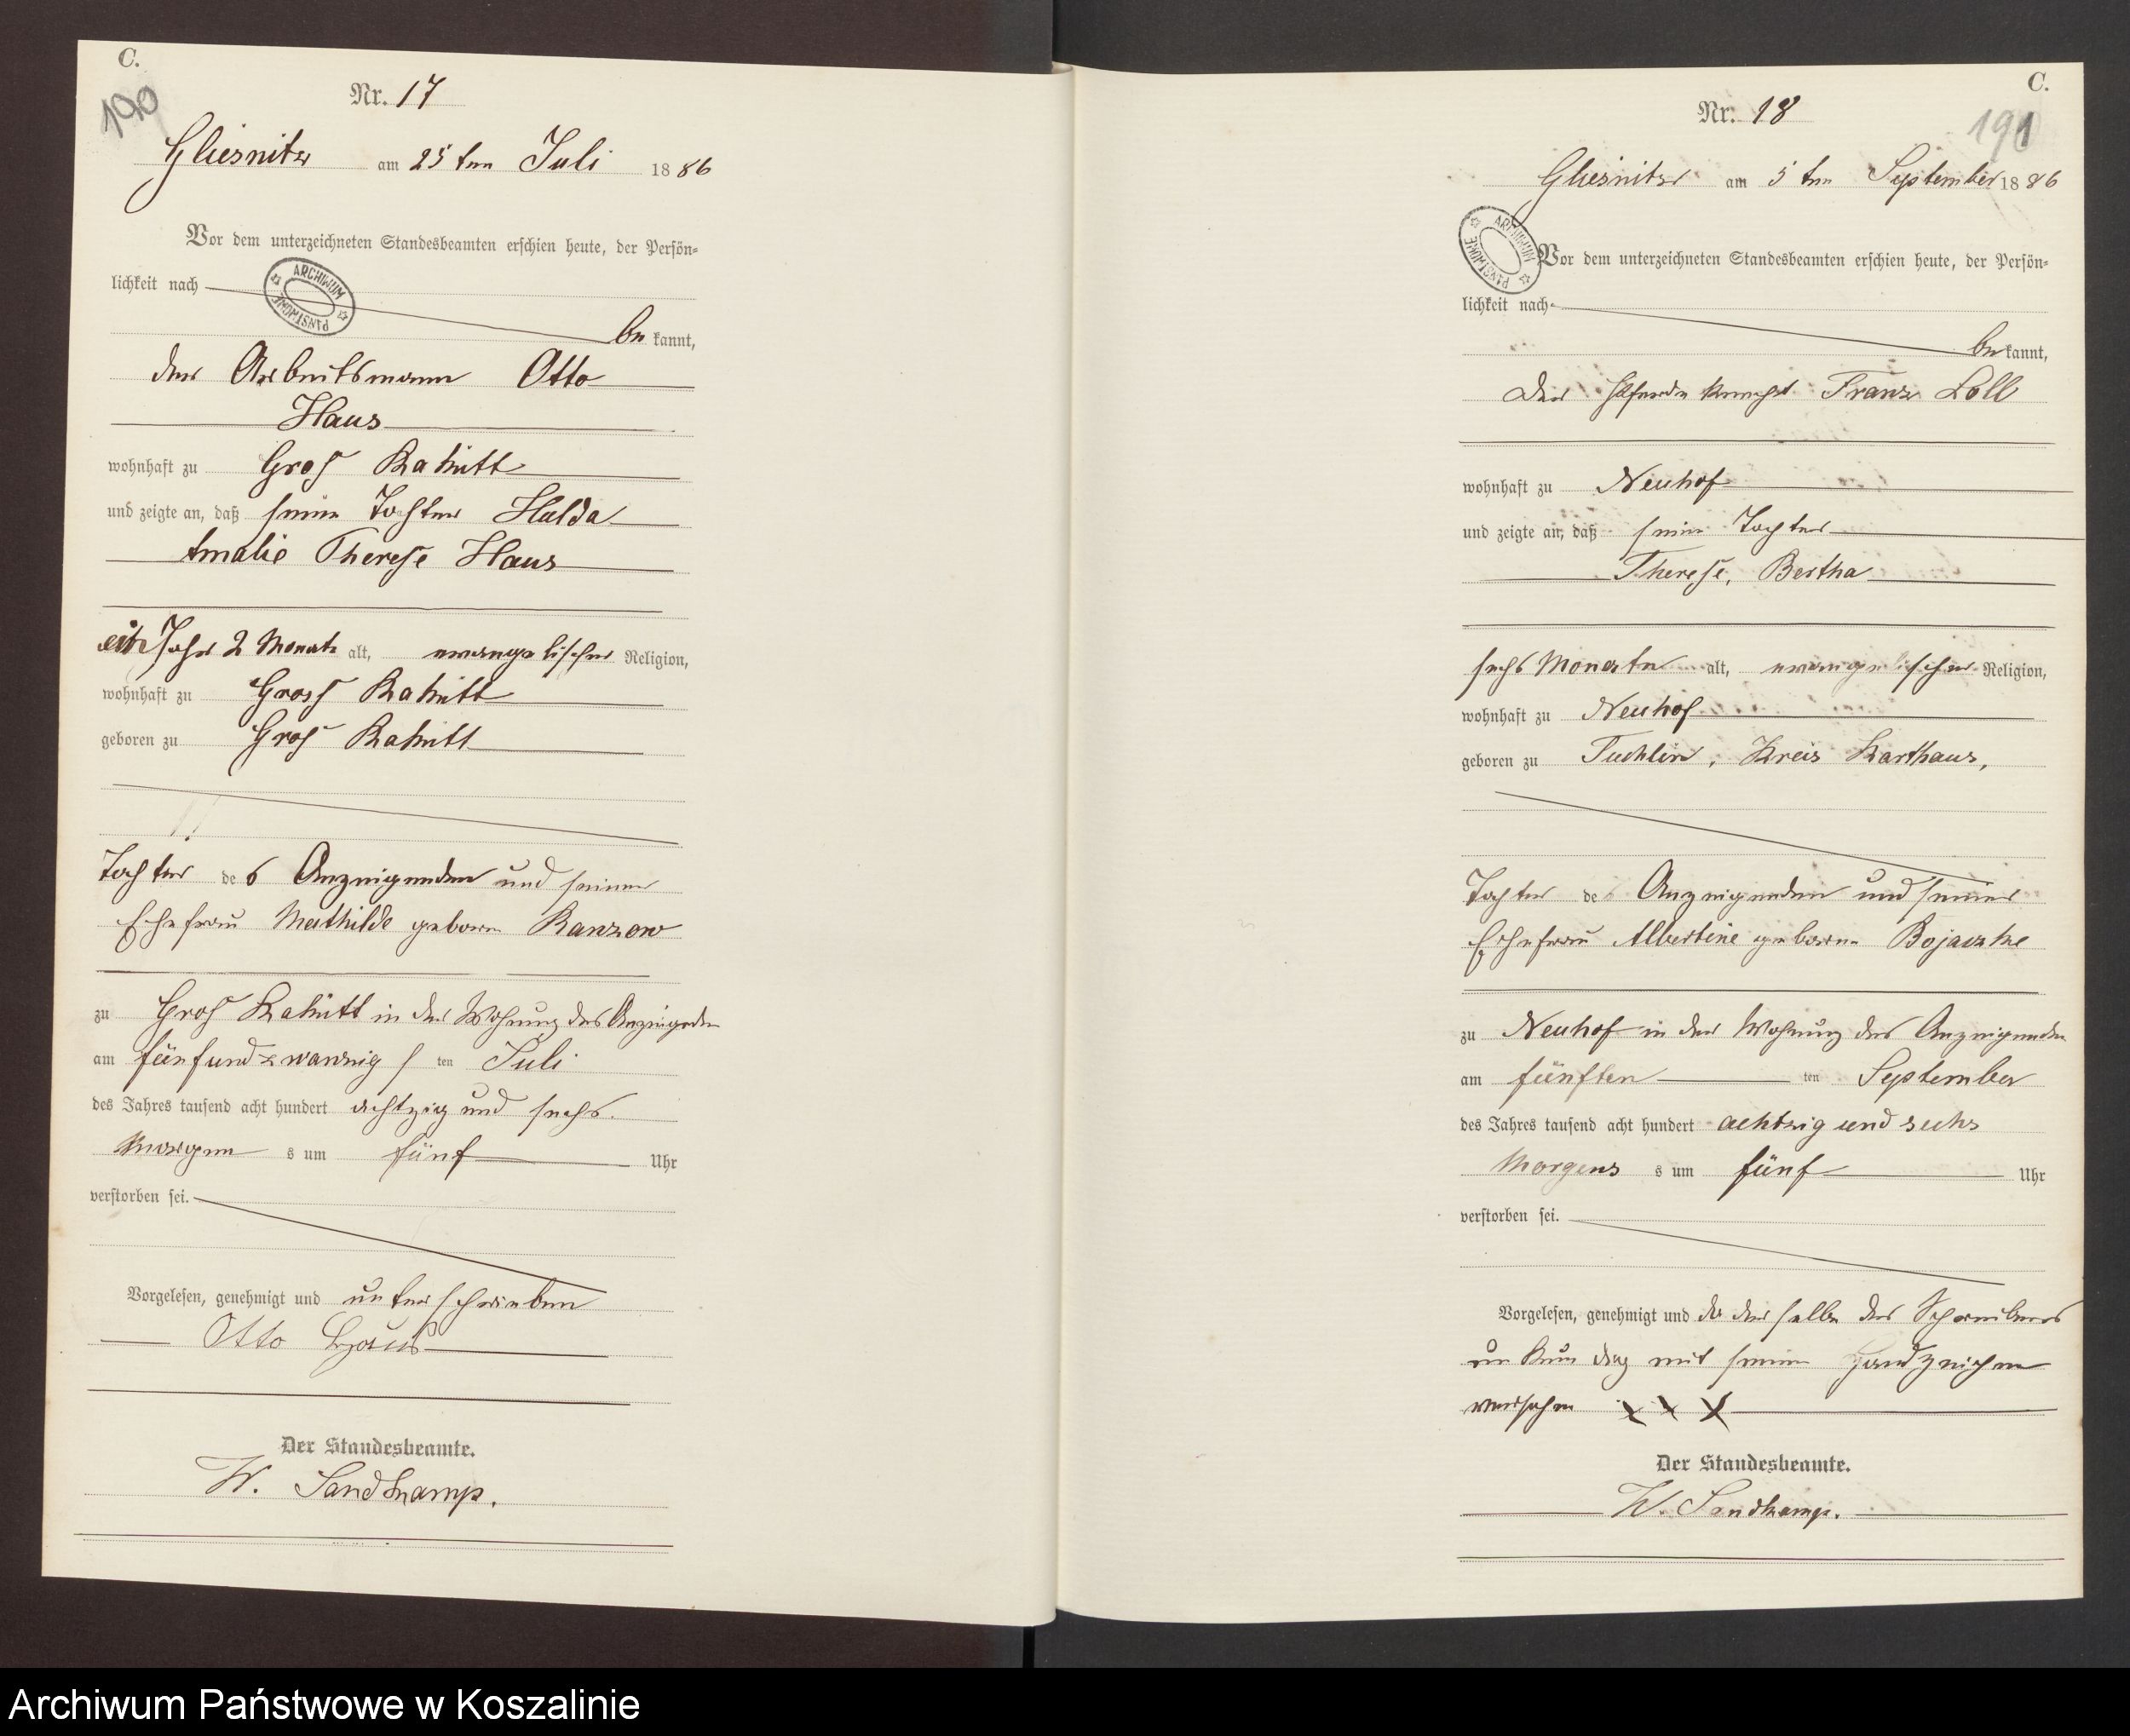 C.
190
Nr. 17
Gliesnitz am 25ten Juli 1886
ARCHIWUM PAŃSTWOWE
Vor dem unterzeichneten Standesbeamten erschien heute, der Persön-
lichkeit nach
bekannt,
der Arbeitsmann Otto
Haus
wohnhaft zu Groß Rakitt
und zeigte an, daß seine Tochter Hulda
Amalie Therese Haus
ein Jahr 2 Monate alt, evangelischer Religion,
wohnhaft zu Gross Rakitt
geboren zu Groß Rakitt
Tochter des Anzeigenden und seiner
Ehefrau Mathilde geborne Ranzow
zu Groß Rakitt in der Wohnung des Anzeigenden
am fünfundzwanzig / ten Juli
des Jahres tausend acht hundert achtzig und sechs
Morgens um fünf Uhr
verstorben sei.
Vorgelesen, genehmigt und unterschrieben
Otto Haus
Der Standesbeamte.
W. Sandkamp.
C.
191
Nr. 18
Gliesnitz am 5ten September 1886
ARCHIWUM PAŃSTWOWE
Vor dem unterzeichneten Standesbeamten erschien heute, der Persön-
lichkeit nach
bekannt,
Der Pferdeknecht Franz Loll
wohnhaft zu Neuhof
und zeigte an, daß seine Tochter
Therese, Bertha
sechs Monate alt, evangelischer Religion,
wohnhaft zu Neuhof
geboren zu Tuchlin, Kreis Karthaus,
Tochter des Anzeigenden und seiner
Ehefrau Albertine geborne
zu Neuhof in der Wohnung des Anzeigenden
am fünften ten September
des Jahres tausend acht hundert achtzig und sechs
Morgens s um fünf Uhr
verstorben sei.
Vorgelesen, genehmigt und da derselbe des Schreibens
unkundig mit seinem Handzeichen
versehen X X X
Der Standesbeamte.
W. Sandkamp.
Archiwum Państwowe w Koszalinie